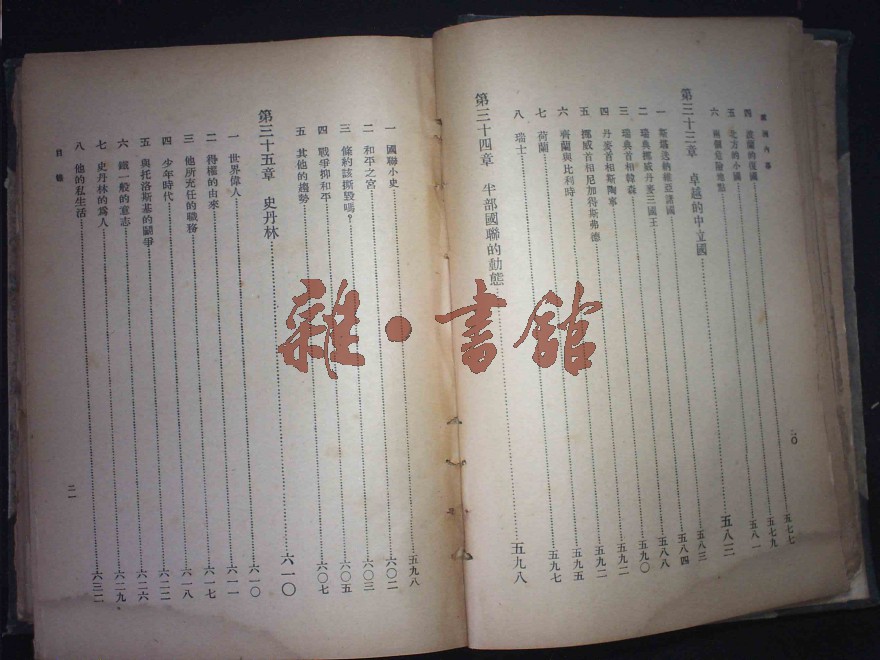 歐洲內幕
四 波蘭的復國……五七七
五 北方的小國……五七九
六 兩個危險地點……五八一
第三十三章 卓越的中立國……五八三
一 斯堪迭納維亞諸國……五八三
二 瑞典挪威丹麥三國王……五八四
三 瑞典首相韓森……五八八
四 丹麥首相斯陶寧……五九〇
五 挪威首相尼加得斯弗德……五九二
六 齊蘭與比利時……五九二
七 荷蘭……五九五
八 瑞士……五九七
第三十四章 半部國聯的動態……五九八
二〇
一 國聯小史……五九八
二 和平之宮……六〇二
三 條約該撕毀嗎？……六〇三
四 戰爭抑和平……六〇五
五 其他的趨勢……六〇七
第三十五章 史丹林……六一〇
一 世界偉人……六一〇
二 得權的由來……六一一
三 他所充任的職務……六一七
四 少年時代……六一八
五 與托洛斯基的鬭爭……六二二
六 鐵一般的意志……六二六
七 史丹林的爲人……六二九
八 他的私生活……六三二
目錄
二一
雜·書館